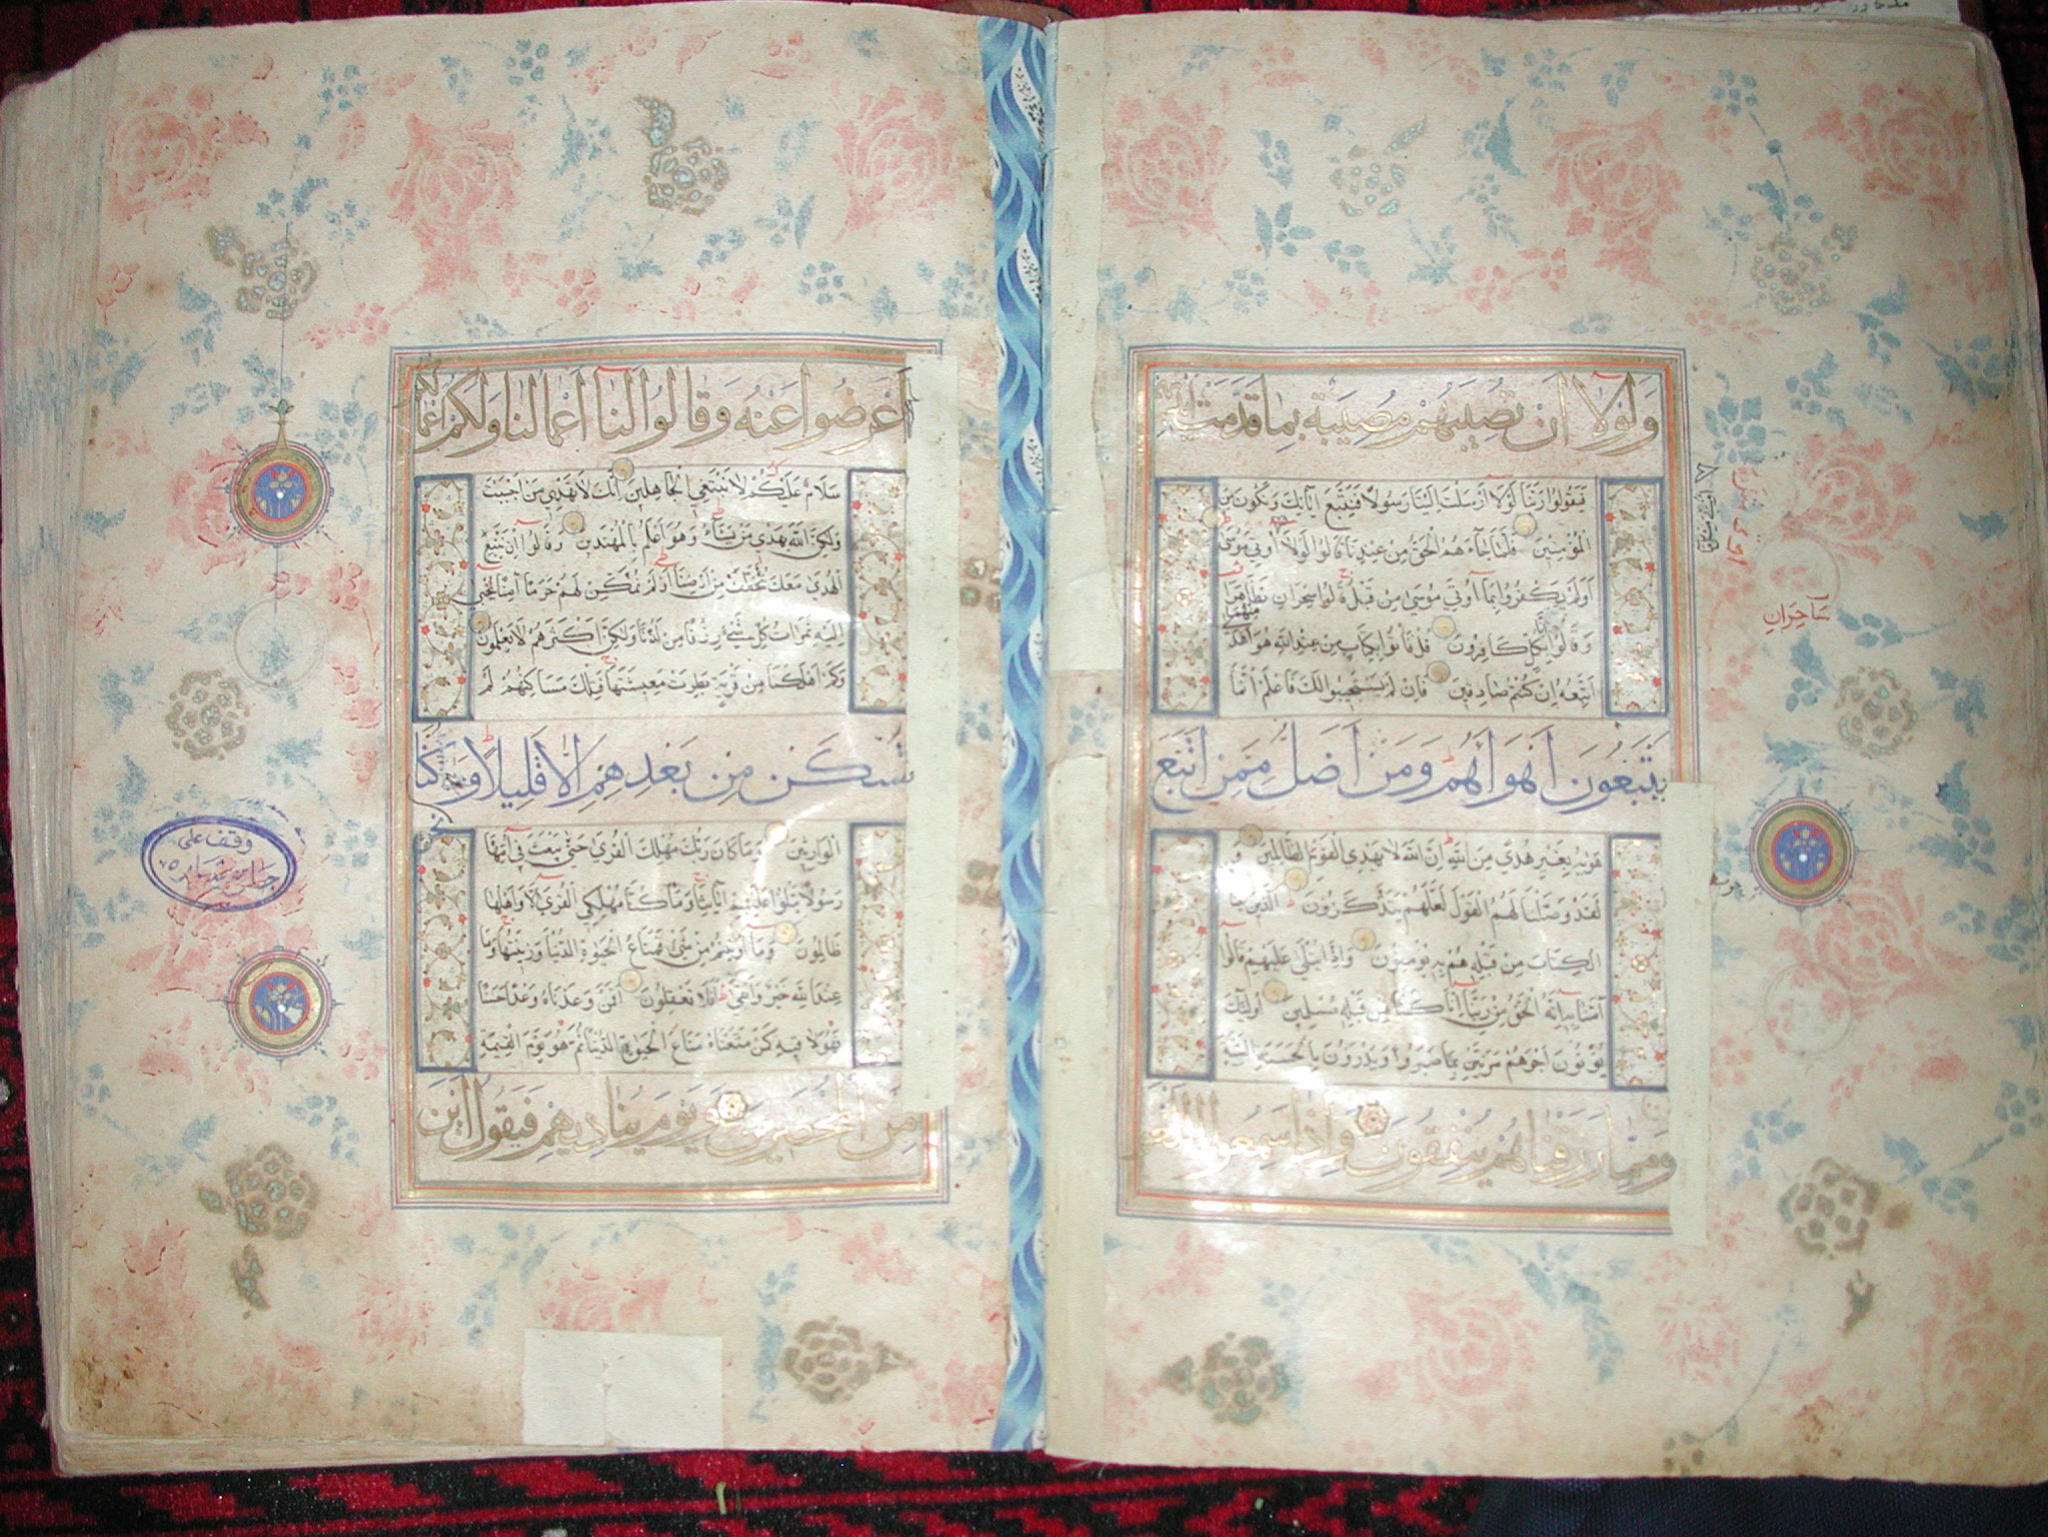 وَلَوْلَا أَن تُصِيبَهُمْ مُصِيبَةٌ بِمَا قَدَّمَتْ أَيْدِيهِمْ
فَيَقُولُوا رَبَّنَا لَوْلَا أَرْسَلْتَ إِلَيْنَا رَسُولًا فَنَتَّبِعَ آيَاتِكَ وَنَكُونَ مِنَ
الْمُؤْمِنِينَ فَلَمَّا جَاءَهُمُ الْحَقُّ مِنْ عِنْدِنَا قَالُوا لَوْلَا أُوتِيَ مُوسَى
أَوَلَمْ يَكْفُرُوا بِمَا أُوتِيَ مُوسَى مِنْ قَبْلُ قَالُوا سِحْرَانِ تَظَاهَرَا
وَقَالُوا إِنَّا بِكُلٍّ كَافِرُونَ قُلْ فَأْتُوا بِكِتَابٍ مِنْ عِنْدِ اللَّهِ هُوَ أَهْدَى مِنْهُمَا
أَتَّبِعْهُ إِنْ كُنْتُمْ صَادِقِينَ فَإِنْ لَمْ يَسْتَجِيبُوا لَكَ فَاعْلَمْ أَنَّمَا
يَتَّبِعُونَ أَهْوَاءَهُمْ وَمَنْ أَضَلُّ مِمَّنِ اتَّبَعَ
هَوَيهُ بِغَيْرِ هُدًى مِنَ اللَّهِ إِنَّ اللَّهَ لَا يَهْدِي الْقَوْمَ الظَّالِمِينَ وَ
لَقَدْ وَصَّلْنَا لَهُمُ الْقَوْلَ لَعَلَّهُمْ يَتَذَكَّرُونَ الَّذِينَ آتَيْنَاهُمُ
الْكِتَابَ مِنْ قَبْلِهِ هُمْ بِهِ يُؤْمِنُونَ وَإِذَا يُتْلَى عَلَيْهِمْ قَالُوا
آمَنَّا بِهِ إِنَّهُ الْحَقُّ مِنْ رَبِّنَا إِنَّا كُنَّا مِنْ قَبْلِهِ مُسْلِمِينَ أُولَئِكَ
يُؤْتَوْنَ أَجْرَهُمْ مَرَّتَيْنِ بِمَا صَبَرُوا وَيَدْرَؤُنَ بِالْحَسَنَةِ السَّيِّئَةَ
وَمِمَّا رَزَقْنَاهُمْ يُنْفِقُونَ وَإِذَا سَمِعُوا اللَّغْوَ
سَاحِرَانِ
أَعْرَضُوا عَنْهُ وَقَالُوا لَنَا أَعْمَالُنَا وَلَكُمْ أَعْمَالُكُمْ
سَلَامٌ عَلَيْكُمْ لَا نَبْتَغِي الْجَاهِلِينَ إِنَّكَ لَا تَهْدِي مَنْ أَحْبَبْتَ
وَلَكِنَّ اللَّهَ يَهْدِي مَنْ يَشَاءُ وَهُوَ أَعْلَمُ بِالْمُهْتَدِينَ وَقَالُوا إِنْ نَتَّبِعِ
الْهُدَى مَعَكَ نُتَخَطَّفْ مِنْ أَرْضِنَا أَوَلَمْ نُمَكِّنْ لَهُمْ حَرَمًا آمِنًا يُجْبَى
إِلَيْهِ ثَمَرَاتُ كُلِّ شَيْءٍ رِزْقًا مِنْ لَدُنَّا وَلَكِنَّ أَكْثَرَهُمْ لَا يَعْلَمُونَ
وَكَمْ أَهْلَكْنَا مِنْ قَرْيَةٍ بَطِرَتْ مَعِيشَتَهَا فَتِلْكَ مَسَاكِنُهُمْ لَمْ
تُسْكَنْ مِنْ بَعْدِهِمْ إِلَّا قَلِيلًا وَكُنَّا نَحْنُ
الْوَارِثِينَ وَمَا كَانَ رَبُّكَ مُهْلِكَ الْقُرَى حَتَّى يَبْعَثَ فِي أُمِّهَا
رَسُولًا يَتْلُوا عَلَيْهِمْ آيَاتِنَا وَمَا كُنَّا مُهْلِكِي الْقُرَى إِلَّا وَأَهْلُهَا
ظَالِمُونَ وَمَا أُوتِيتُمْ مِنْ شَيْءٍ فَمَتَاعُ الْحَيَوةِ الدُّنْيَا وَزِينَتُهَا وَمَا
عِنْدَ اللَّهِ خَيْرٌ وَأَبْقَى أَفَلَا تَعْقِلُونَ أَفَمَنْ وَعَدْنَاهُ وَعْدًا حَسَنًا
فَهُوَ لَاقِيهِ كَمَنْ مَتَّعْنَاهُ مَتَاعَ الْحَيَوةِ الدُّنْيَا ثُمَّ هُوَ يَوْمَ الْقِيمَةِ
مِنَ الْمُحْضَرِينَ وَيَوْمَ يُنَادِيهِمْ فَيَقُولُ أَيْنَ
وقف على